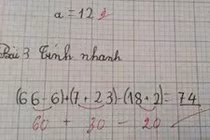 a = 12 2
Bài 3 Tính nhanh
(66-6)+(7+23)-(18+2)=74
60 + 30 - 20